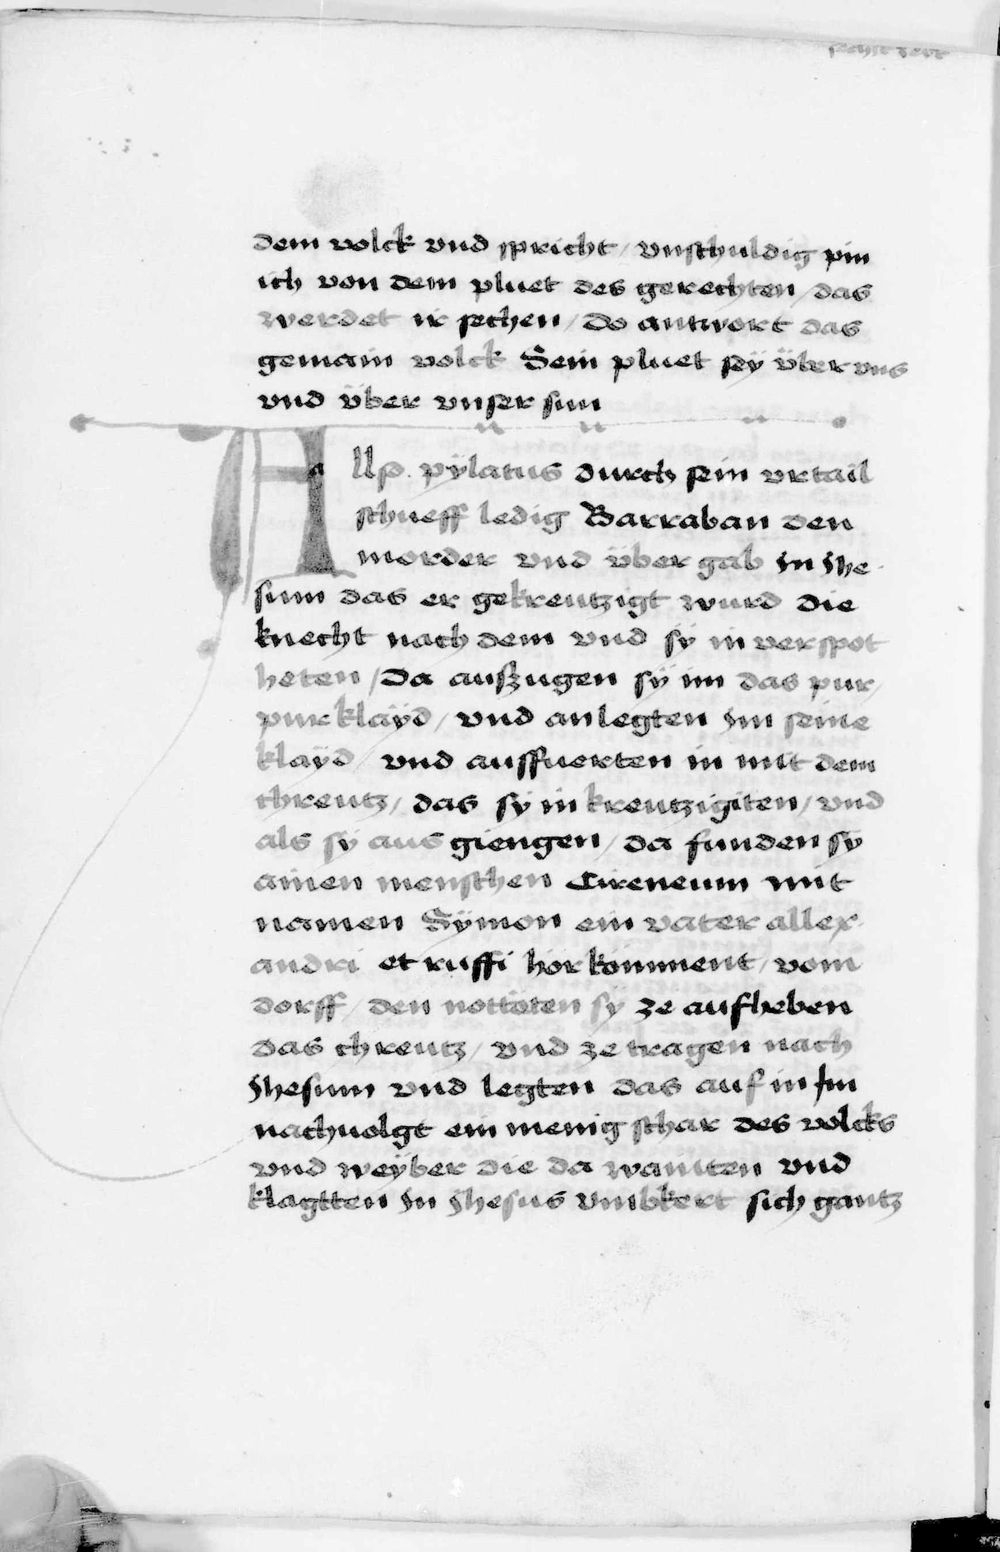 dem volck vnd spricht / vnschuldig pin
ich von dem pluet des gerechten / das
werdet ir sechen / Do antwort das
gemain volck Sein pluet sÿ über vns
vnd über vnser sun
Allso pÿlatus durch sein vrtail
schueff ledig Barraban den
morder vnd über gab in ihe
sum das er gekreutzigt wurd die
knecht nach dem vnd sÿ in verspot
heten / Da auszugen sÿ im das pur
pur klaÿd / vnd anlegten im seine
klaÿd / vnd aufffuerten in mit dem
chreutz / das sÿ in kreutzigiten / vnd
als sÿ aus giengen / da funden sÿ
ainen menschen Cireneum mit
namen Sÿmon ein vater allex
andri et ruffi hör komment / vom
dorff / den nottöten sÿ ze aufheben
das chreutz / vnd ze tragen nach
ihesum vnd legten das auf in im
nachuolgt ein menig schar des volcks
vnd weÿber die da wainten vnd
klagtten in ihesus vmbkert sich gantz